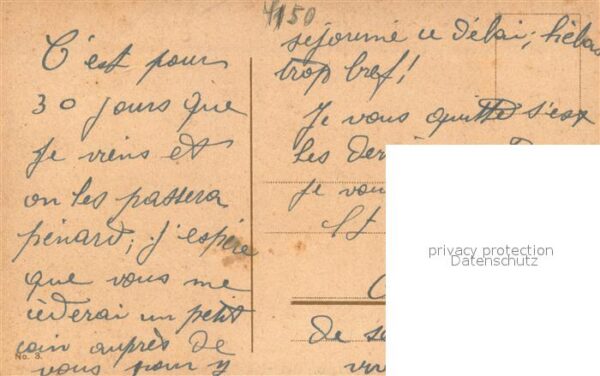 4150
C'est pour
30 jours que
je viens et
on les passera
pénard; j'espère
que vous me
cèderai un petit
coin auprès de
vous pour y
No. 8.
séjourné ce délai; hélas
trop bref!
Je vous quitte s'est
les der
je vou
privacy protection
Datenschutz
de